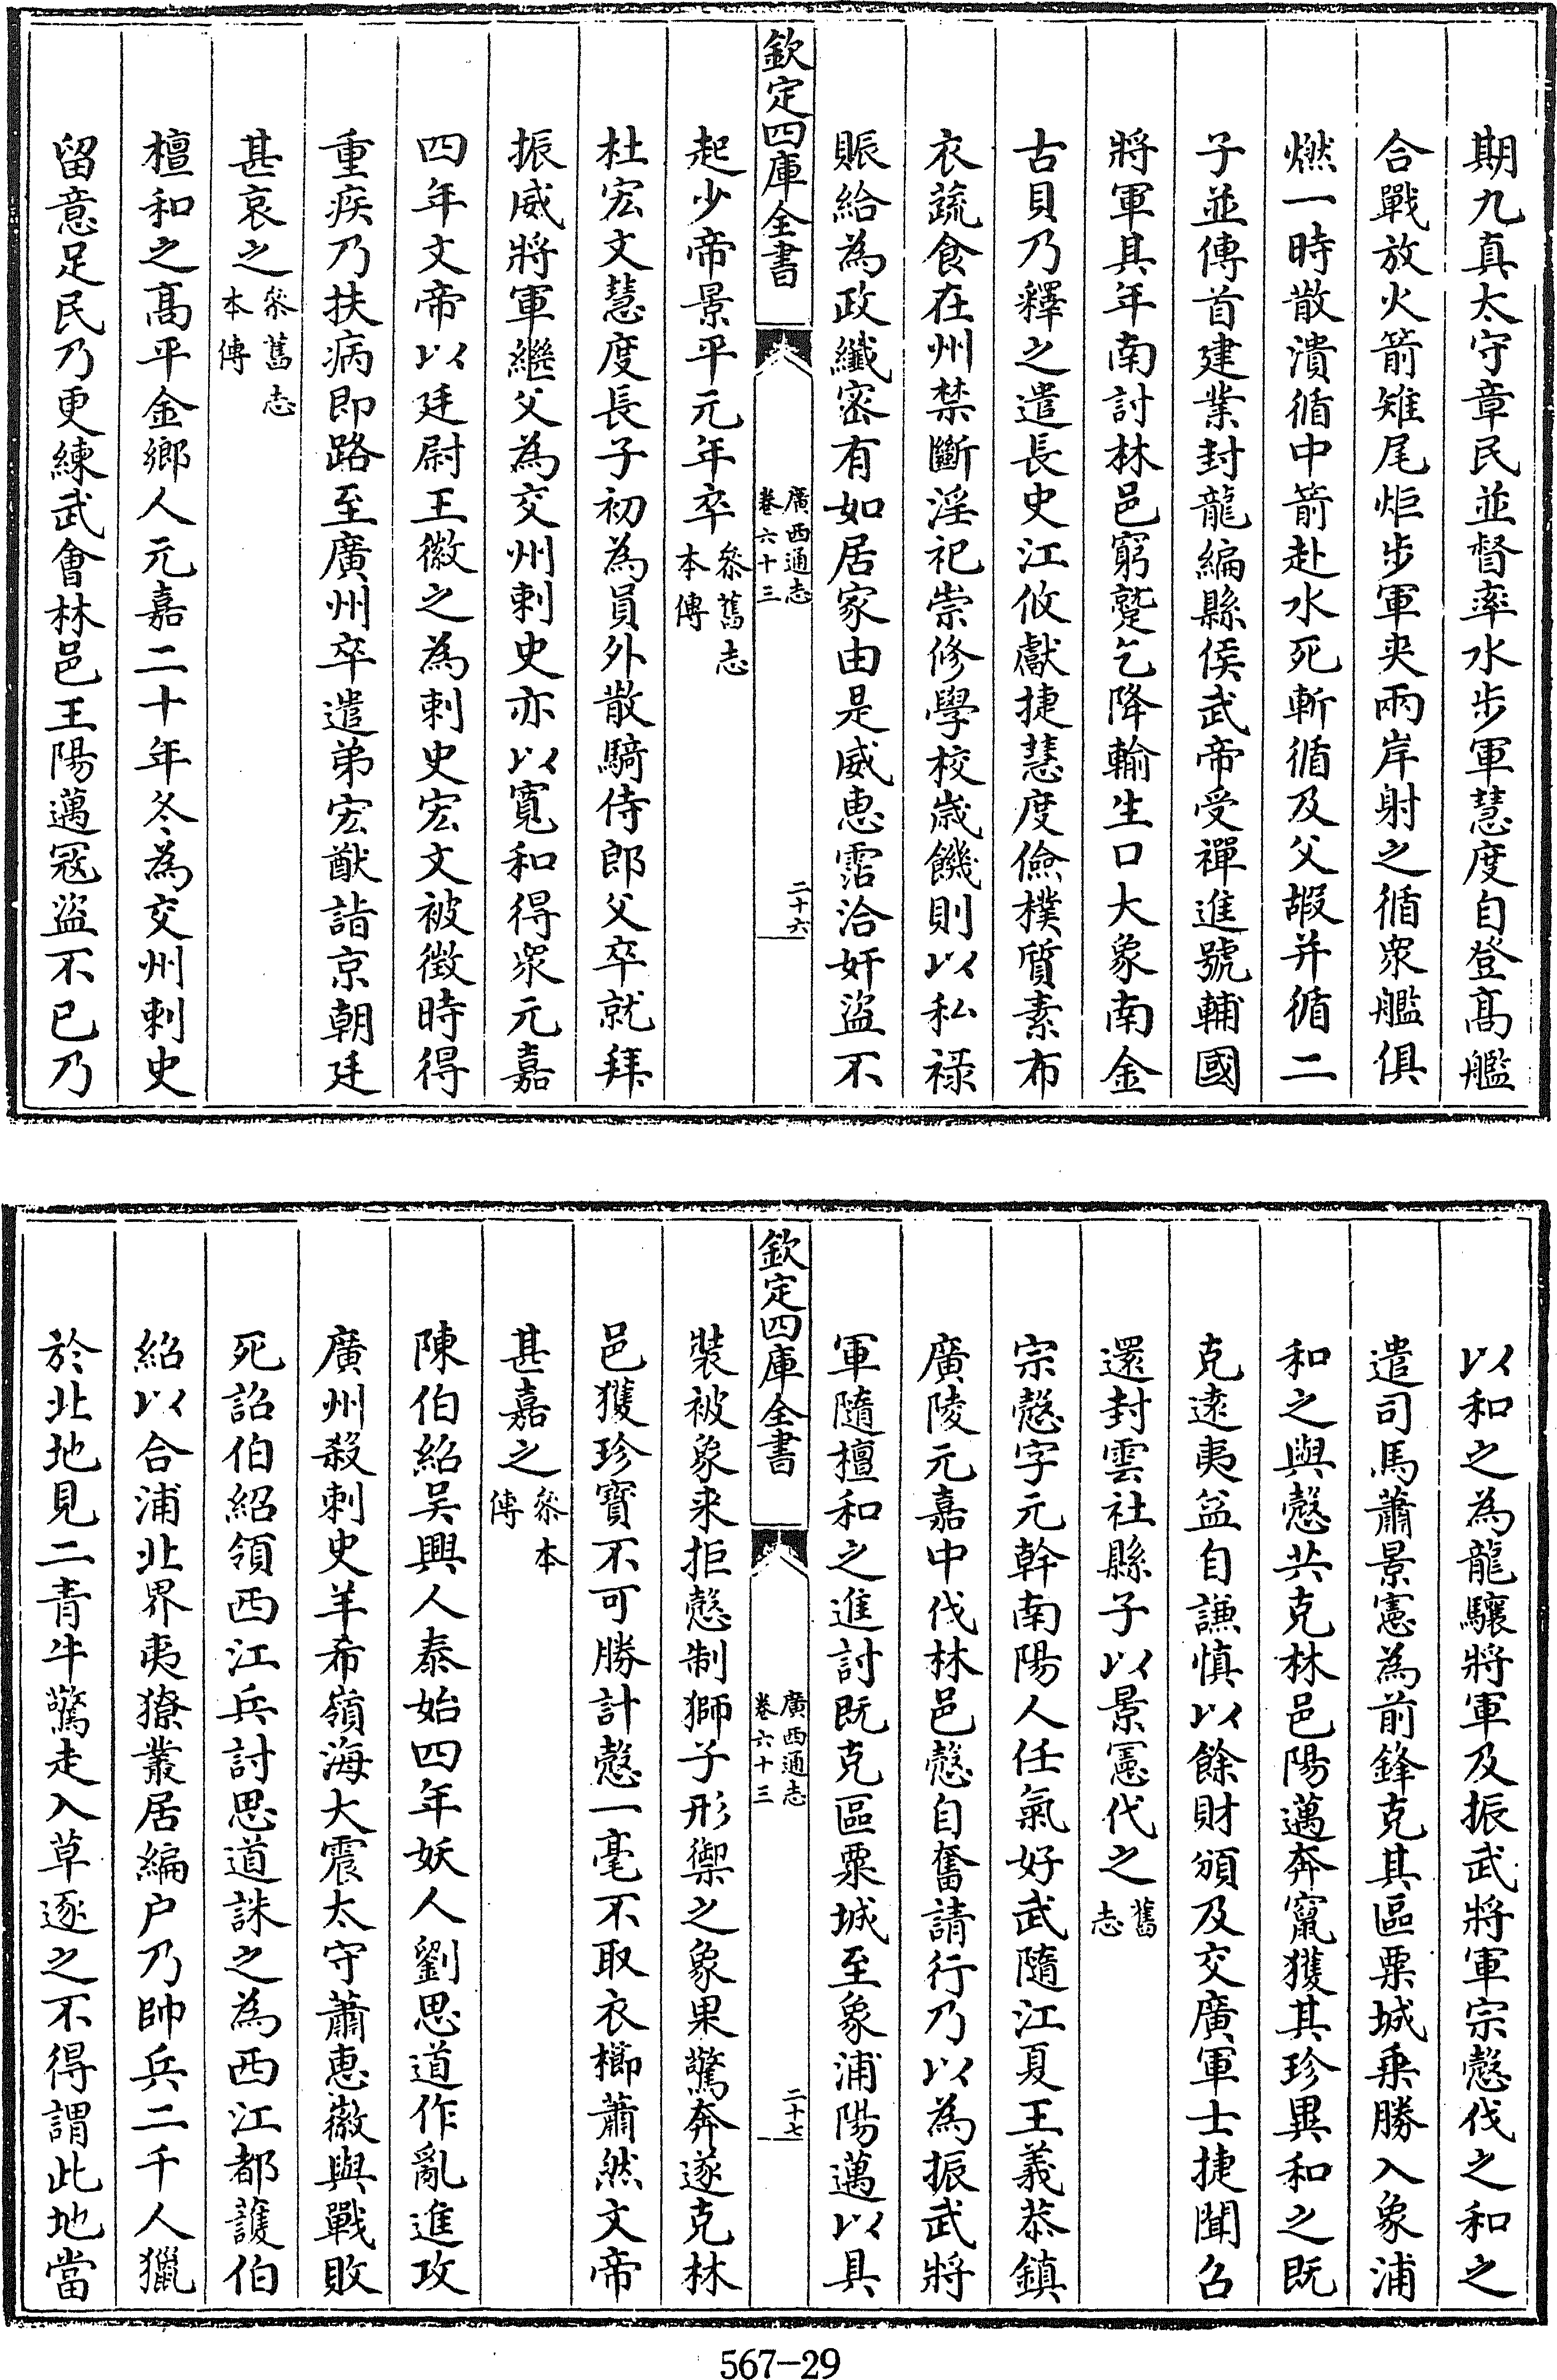 期九真太守章民並督率水步軍慧度自登髙艦
合戰放火箭雉尾炬步軍夾兩岸射之循衆艦俱
燃一時散潰循中箭赴水死斬循及父嘏并循二
子並傳首建業封龍編縣侯武帝受禪進號輔國
將軍其年南討林邑窮蹙乞降輸生口大象南金
古貝乃釋之遣長史江攸獻捷慧度儉樸質素布
衣蔬食在州禁斷淫祀崇修學校歳饑則以私禄
賑給為政纖密有如居家由是威惠霑洽奸盜不
欽定四庫全書
廣西通志
卷六十三
二十六
起少帝景平元年卒
叅舊志
本傳
杜宏文慧度長子初為員外散騎侍郎父卒就拜
振威將軍繼父為交州刺史亦以寬和得衆元嘉
四年文帝以廷尉王徽之為刺史宏文被徵時得
重疾乃扶病即路至廣州卒遣弟宏猷詣京朝廷
甚哀之
叅舊志
本傳
檀和之髙平金鄉人元嘉二十年冬為交州刺史
留意足民乃更練武會林邑王陽邁寇盜不已乃
以和之為龍驤將軍及振武將軍宗慤伐之和之
遣司馬蕭景憲為前鋒克其區粟城乗勝入象浦
和之與慤共克林邑陽邁奔竄獲其珍異和之既
克逺夷益自謙慎以餘財頒及交廣軍士捷聞召
還封雲社縣子以景憲代之
舊
志
宗慤字元幹南陽人任氣好武隨江夏王義恭鎮
廣陵元嘉中伐林邑慤自奮請行乃以為振武將
軍隨檀和之進討既克區粟城至象浦陽邁以具
欽定四庫全書
廣西通志
卷六十三
二十七
裝被象來拒慤制獅子形禦之象果驚奔遂克林
邑獲珍寳不可勝計慤一毫不取衣櫛蕭然文帝
甚嘉之
叅本
傳
陳伯紹吴興人泰始四年妖人劉思道作亂進攻
廣州殺刺史羊希嶺海大震太守蕭惠徽與戰敗
死詔伯紹領西江兵討思道誅之為西江都護伯
紹以合浦北界夷獠叢居編户乃帥兵二千人獵
於北地見二青牛驚走入草逐之不得謂此地當
567-29